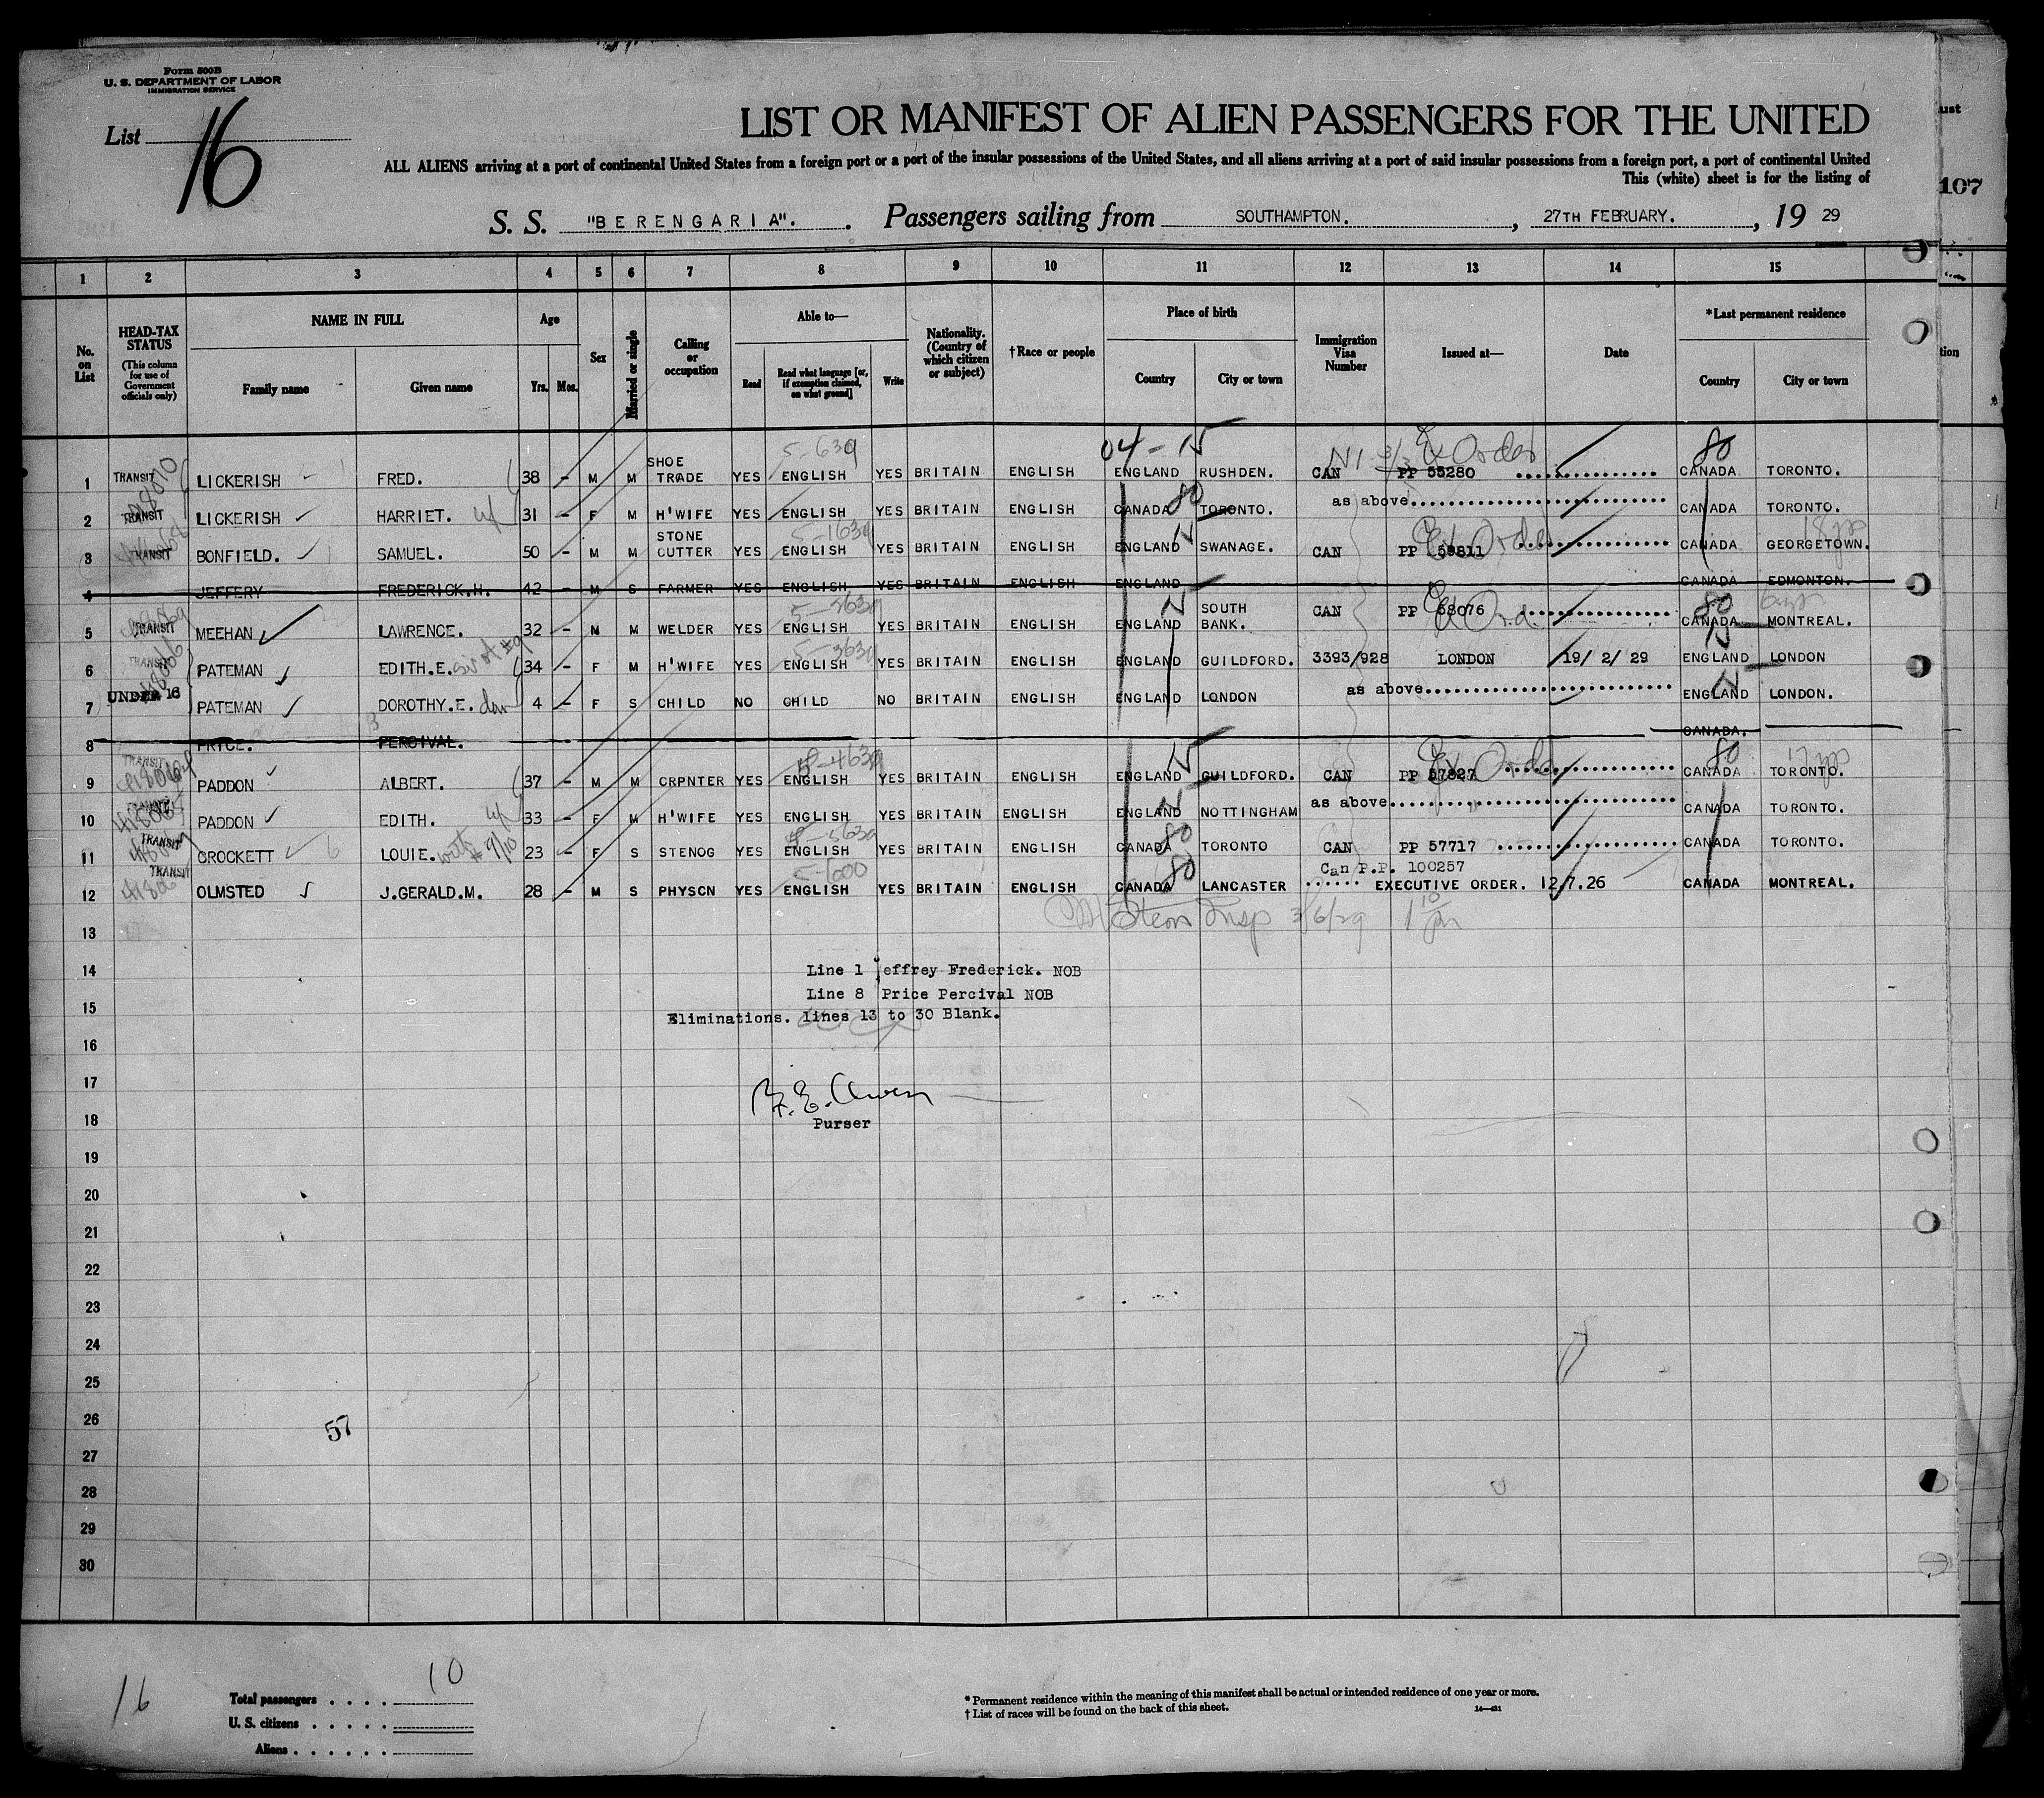 Form 500B
U. S. DEPARTMENT OF LABOR
IMMIGRATION SERVICE
List 16
LIST OR MANIFEST OF ALIEN PASSENGERS FOR THE UNITED
ALL ALIENS arriving at a port of continental United States from a foreign port or a port of the insular possessions of the United States, and all aliens arriving at a port of said insular possessions from a foreign port, a port of continental United
This (white) sheet is for the listing of
107
S. S. "BERENGARIA". Passengers sailing from SOUTHAMPTON. , 27TH FEBRUARY. , 19 29
1 2 3 4 5 6 7 8 9 10 11 12 13 14 15
No. on List
HEAD-TAX STATUS (This column for use of Government officials only)
NAME IN FULL Family name Given name
Age Yrs. Mos.
Sex
Married or single
Calling or occupation
Able to— Read Read what language [or, if exemption claimed, on what ground] Write
Nationality. (Country of which citizen or subject)
†Race or people
Place of birth Country City or town
Immigration Visa Number
Issued at—
Date
*Last permanent residence Country City or town
04 - N 80
1 TRANSIT LICKERISH FRED. 38 - M M SHOE TRADE YES ENGLISH YES BRITAIN ENGLISH ENGLAND RUSHDEN. CAN PP 55280 Ex Order CANADA TORONTO.
2 TRANSIT LICKERISH HARRIET. wf 31 - F M H'WIFE YES ENGLISH YES BRITAIN ENGLISH CANADA 80 TORONTO. as above CANADA TORONTO.
3 TRANSIT BONFIELD. SAMUEL. 50 - M M STONE CUTTER YES ENGLISH YES BRITAIN ENGLISH ENGLAND SWANAGE. CAN PP 58811 Ex Order CANADA GEORGETOWN.
4 JEFFERY FREDERICK.H. 42 - M S FARMER YES ENGLISH YES BRITAIN ENGLISH ENGLAND CANADA EDMONTON.
5 TRANSIT MEEHAN LAWRENCE. 32 - M M WELDER YES ENGLISH YES BRITAIN ENGLISH ENGLAND SOUTH BANK. CAN PP 58076 Ex Ord. 80 CANADA MONTREAL.
6 TRANSIT PATEMAN EDITH.E. 34 - F M H'WIFE YES ENGLISH YES BRITAIN ENGLISH ENGLAND GUILDFORD. 3393/928 LONDON 19/ 2/ 29 ENGLAND LONDON
7 UNDER 16 PATEMAN DOROTHY.E. dau 4 - F S CHILD NO CHILD NO BRITAIN ENGLISH ENGLAND LONDON as above ENGLAND LONDON.
8 PRICE. PERCIVAL. CANADA.
9 TRANSIT PADDON ALBERT. 37 - M M CRPNTER YES ENGLISH YES BRITAIN ENGLISH ENGLAND GUILDFORD. CAN PP 57827 Ex Order 80 CANADA TORONTO.
10 TRANSIT PADDON EDITH. wf 33 - F M H'WIFE YES ENGLISH YES BRITAIN ENGLISH ENGLAND NOTTINGHAM as above CANADA TORONTO.
11 TRANSIT CROCKETT LOUIE. with # 9/10 23 - F S STENOG YES ENGLISH YES BRITAIN ENGLISH CANADA 80 TORONTO CAN PP 57717 CANADA TORONTO.
Can P.P. 100257
12 TRANSIT OLMSTED J.GERALD.M. 28 - M S PHYSCN YES ENGLISH YES BRITAIN ENGLISH CANADA 80 LANCASTER EXECUTIVE ORDER. 12/7.26 CANADA MONTREAL.
13 Insp 3/6/29
14 Line 1 jeffrey Frederick. NOB
Line 8 Price Percival NOB
15 Eliminations. lines 13 to 30 Blank.
16
17
18 Purser
19
20
21
22
23
24
25
26 57
27
28
29
30
16
Total passengers . . . . 10
U. S. citizens . . . . .
Aliens . . . . . .
* Permanent residence within the meaning of this manifest shall be actual or intended residence of one year or more.
† List of races will be found on the back of this sheet.